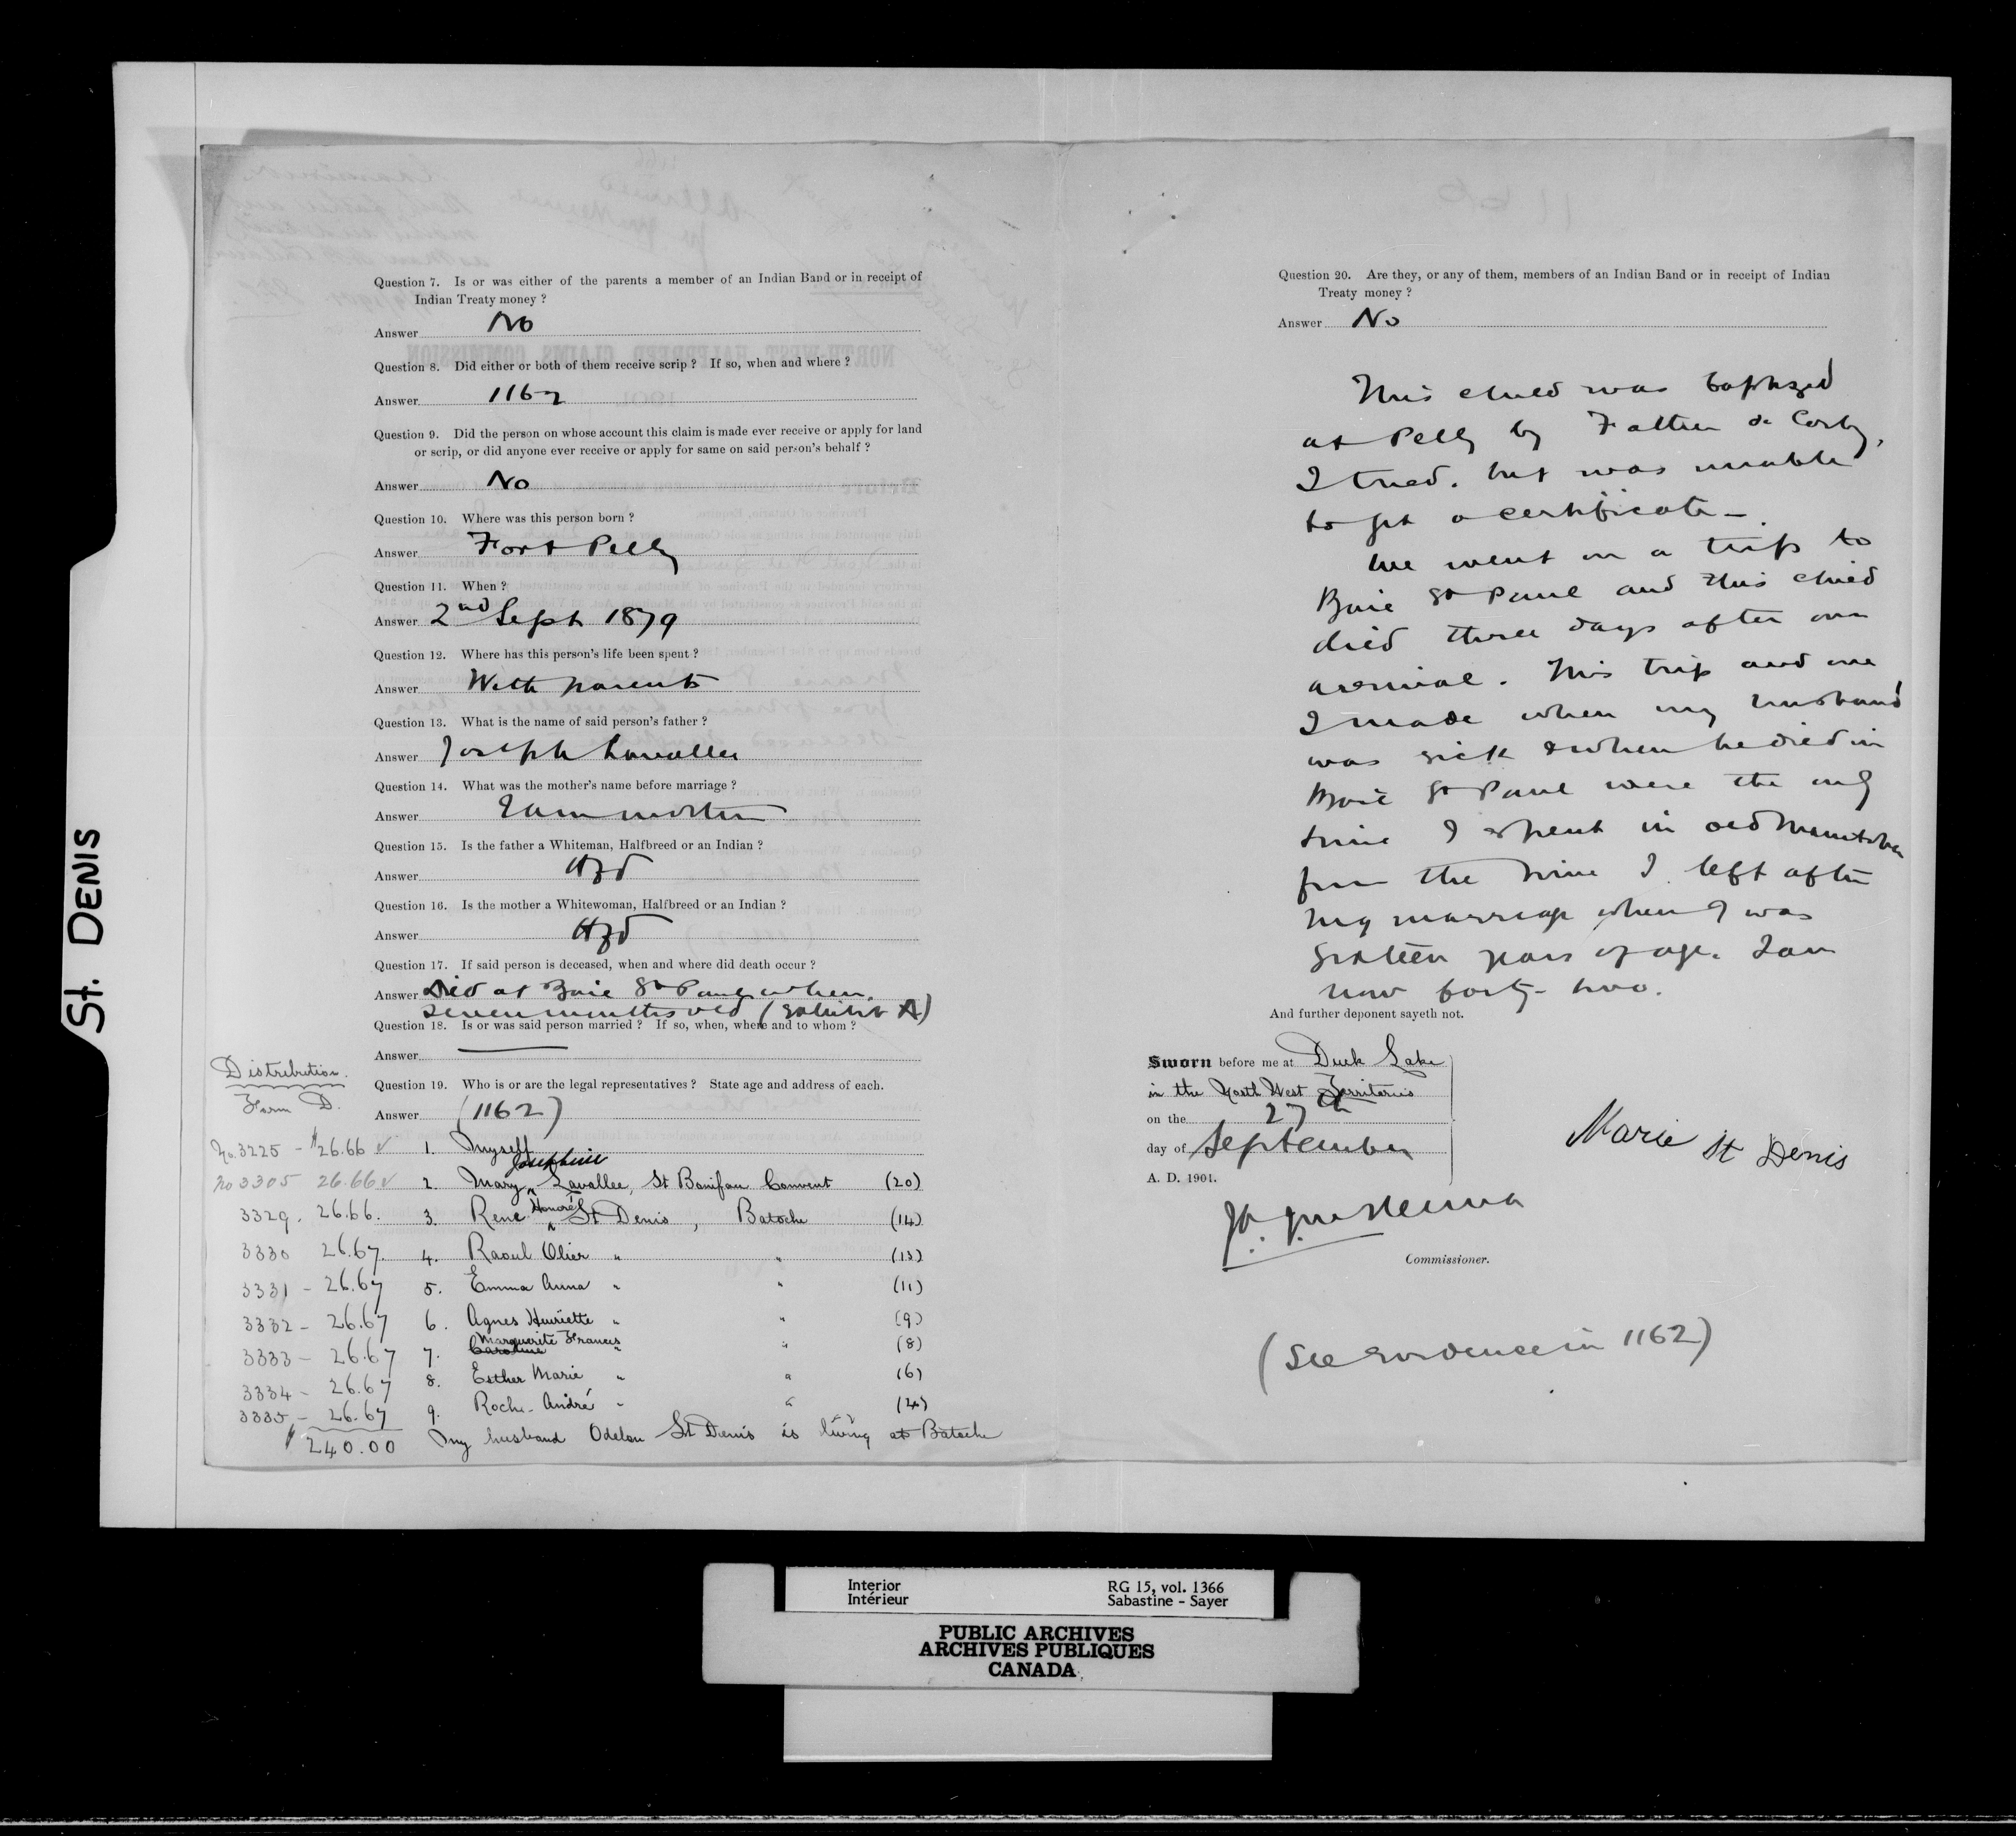 St. DENIS
Question 7. Is or was either of the parents a member of an Indian Band or in receipt of
Indian Treaty money ?
Answer No
Question 8. Did either or both of them receive scrip ? If so, when and where ?
Answer 1162
Question 9. Did the person on whose account this claim is made ever receive or apply for land
or scrip, or did anyone ever receive or apply for same on said person's behalf ?
Answer No
Question 10. Where was this person born ?
Answer Fort Pelly
Question 11. When ?
Answer 2nd Sept 1879
Question 12. Where has this person's life been spent ?
Answer With parents
Question 13. What is the name of said person's father ?
Answer Joseph Lavallee
Question 14. What was the mother's name before marriage ?
Answer I am mother
Question 15. Is the father a Whiteman, Halfbreed or an Indian ?
Answer Hfd
Question 16. Is the mother a Whitewoman, Halfbreed or an Indian ?
Answer Hfd
Question 17. If said person is deceased, when and where did death occur ?
Answer Died at Baie St Paul when
seven months old (Exhibit A)
Question 18. Is or was said person married ? If so, when, where and to whom ?
Answer —
Question 19. Who is or are the legal representatives ? State age and address of each.
Answer (1162)
Distribution.
Form D.
No 3225 - $26.66 ✓ 1. Myself
No 3305 26.66 ✓ 2. Mary Josephine Lavallee, St Boniface Convent (20)
3329. 26.66. 3. Rene Honoré St Denis, Batoche (14)
3330 26.67. 4. Raoul Olier " " (13)
3331 - 26.67 5. Emma Anna " " (11)
3332 - 26.67 6. Agnes Henriette " " (9)
3333 - 26.67 7. Caroline Marguerite Francis " " (8)
3334 - 26.67 8. Esther Marie " " (6)
3335 - 26.67 9. Roch - André " " (4)
$240.00 My husband Odelon St Denis is living at Batoche
Question 20. Are they, or any of them, members of an Indian Band or in receipt of Indian
Treaty money ?
Answer No
This child was baptized
at Pelly by Father de Corby,
I tried, but was unable
to get a certificate —
We went on a trip to
Baie St Paul and this child
died three days after our
arrival. This trip and one
I made when my husband
was sick & when he died in
Baie St Paul were the only
time I spent in old Manitoba
from the time I left after
my marriage when I was
sixteen years of age. I am
now forty-two.
And further deponent sayeth not.
Sworn before me at Duck Lake
in the North West Territories
on the 27th
day of September
A. D. 1901.
Marie St Denis
Commissioner.
(See evidence in 1162)
Interior
Intérieur
RG 15, vol. 1366
Sabastine - Sayer
PUBLIC ARCHIVES
ARCHIVES PUBLIQUES
CANADA